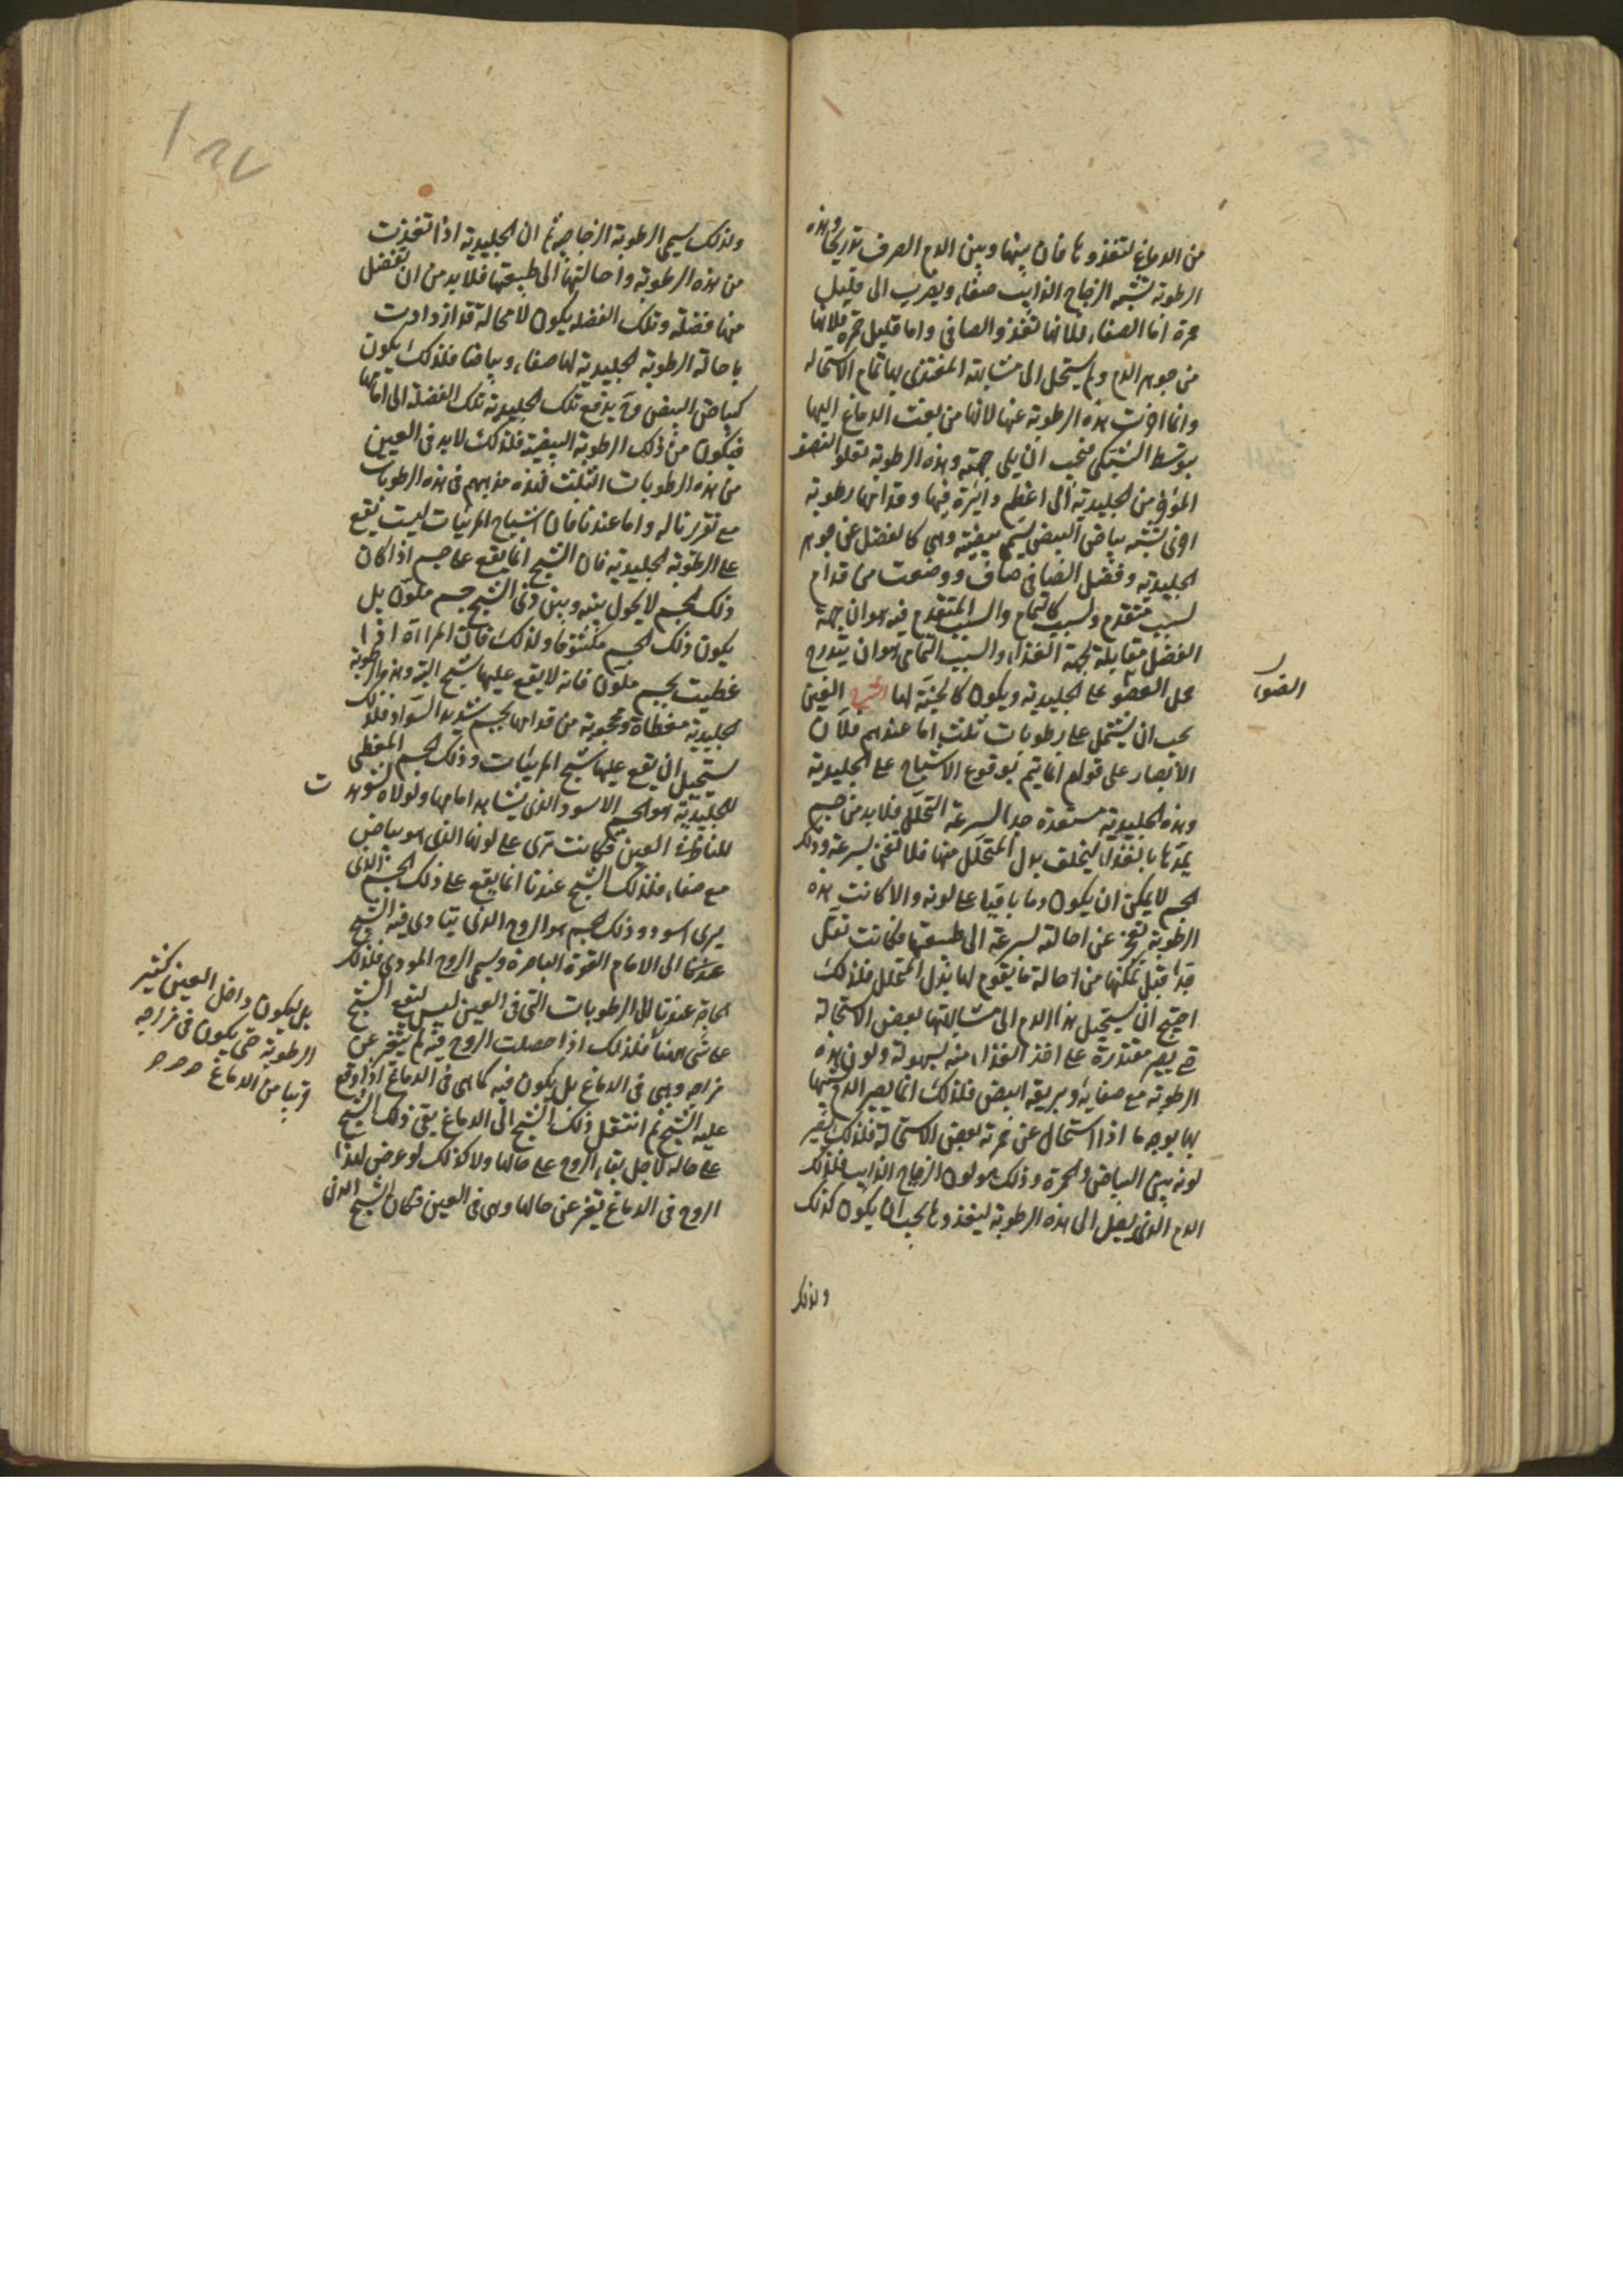 من الدماغ لتغذوها فان بينها وبين الدم الصرف تدريجا وهذه
الرطوبة تشبه الزجاج الذايب صفاء ويضرب الى قليل
حمرة اما الصفاء فلانها تغذو الصافى واما قليل حمرة فلانها
من جوهر الدم ولم يستحل الى مشابهة المغتذى بها تمام الاستحالة
وانما اخرت هذه الرطوبة عنها لانها من بعث الدماغ اليها
بتوسط الشبكى فيجب ان يلى جهته وهذه الرطوبة تعلو النصف
المؤخر من الجليدية الى اعظم دايرة فيها وقدامها رطوبة
اخرى تشبه بياض البيض يسمى بيضية وهى كالفضل عن جوهر
الجليدية وفضل الصافى صاف ووضعت من قدام
لسبب متقدم ولسبب كالتمام والسبب المتقدم فيه هو ان جهة
الفضل مقابلة لجهة الغذاء والسبب التمامى هو ان يتدرج
حمل الضوء على الجليدية ويكون كالجنة لها الشرح العين
يجب ان يشتمل على رطوبات ثلث اما عندهم فلان
الابصار على قولهم انما يتم بوقوع الاشباح على الجليدية
وهذه الجليدية مستعدة جدا لسرعة التحلل فلا بد من جسم
يمدها بالغذاء ليخلف بدل المتحلل منها فلا تفنى بسرعة وذلك
الجسم لا يمكن ان يكون دما باقيا على لونه والا كانت هذه
الرطوبة تعجز عن احالته بسرعة الى طبيعتها فكانت تقل
جدا قبل تمكنها من احالة ما يقوم لها بدل المتحلل فلذلك
احتيج ان يستحيل هذا الدم الى مشابهتها بعض الاستحالة
حتى يصير مقتدرة على اخذ الغذاء منه بسهولة ولون هذه
الرطوبة مع صفايه وبريقه ابيض فلذلك انما يصير الدم شبيها
بها بوجه ما اذا استحال عن حمرته بعض الاستحالة فلذلك يصير
لونه بين البياض والحمرة وذلك هو لون الزجاج الذايب فلذلك
الدم الذى يصل الى هذه الرطوبة ليغذوها يجب ان يكون كذلك
ولذلك
الضوء
ولذلك يسمى الرطوبة الزجاجية ثم ان الجليدية اذا تغذت
من هذه الرطوبة واحالتها الى طبيعتها فلا بد من ان تفضل
منها فضلة وتلك الفضلة يكون لا محالة قد ازدادت
باحالة الرطوبة الجليدية لها صفاء وبياضا فلذلك يكون
كبياض البيض وح يدفع تلك الجليدية تلك الفضلة الى امامها
فيكون من ذلك الرطوبة البيضية فلذلك لا بد فى العين
من هذه الرطوبات الثلث فهذه مذهبهم فى هذه الرطوبات
مع تقريرنا له واما عندنا فان اشباح المرئيات ليست يقع
على الرطوبة الجليدية فان الشبح انما يقع على جسم اذا كان
ذلك الجسم لا يحول بينه وبين ذى الشبح جسم ملون بل
يكون ذلك الجسم مكشوفا ولذلك فان المرآة اذا
غطيت بجسم ملون فانه لا يقع عليها شبح البتة وهذه الرطوبة
الجليدية مغطاة ومحجوبة من قدامها بجسم شديد السواد فلذلك
يستحيل ان يقع عليها شبح المرئيات وذلك الجسم المغطى
للجليدية هو الجسم الاسود الذى يشاهد امامها ولولاه لشوهدت
للناظر فى العين فكانت ترى على لونها الذى هو بياض
مع صفاء فلذلك الشبح عندنا انما يقع على ذلك الجسم الذى
يرى اسود وذلك الجسم هو الروح الذى يتادى فيه الشبح
عندنا الى الامام القوة الباصرة ويسمى الروح المودى فلذلك ح
الحاجة عندنا الى الرطوبات التى فى العين ليس ليقع الشبح
على شى منها فلذلك اذا حصلت الروح فيه لم يتغير عن
مزاجه وهى فى الدماغ بل يكون فيه كما هى فى الدماغ اذا وقع
عليه الشبح ثم انتقل ذلك الشبح الى الدماغ بقى ذلك الشبح
على حاله لاجل بقاء الروح على حالها ولا كذلك لو عرض لهذا
الروح فى الدماغ تغير عن حالها وهى فى العين فكان الشبح الذى
بل ليكون داخل العين كثير
الرطوبة حتى يكون فى مزاجه
قريبا من الدماغ